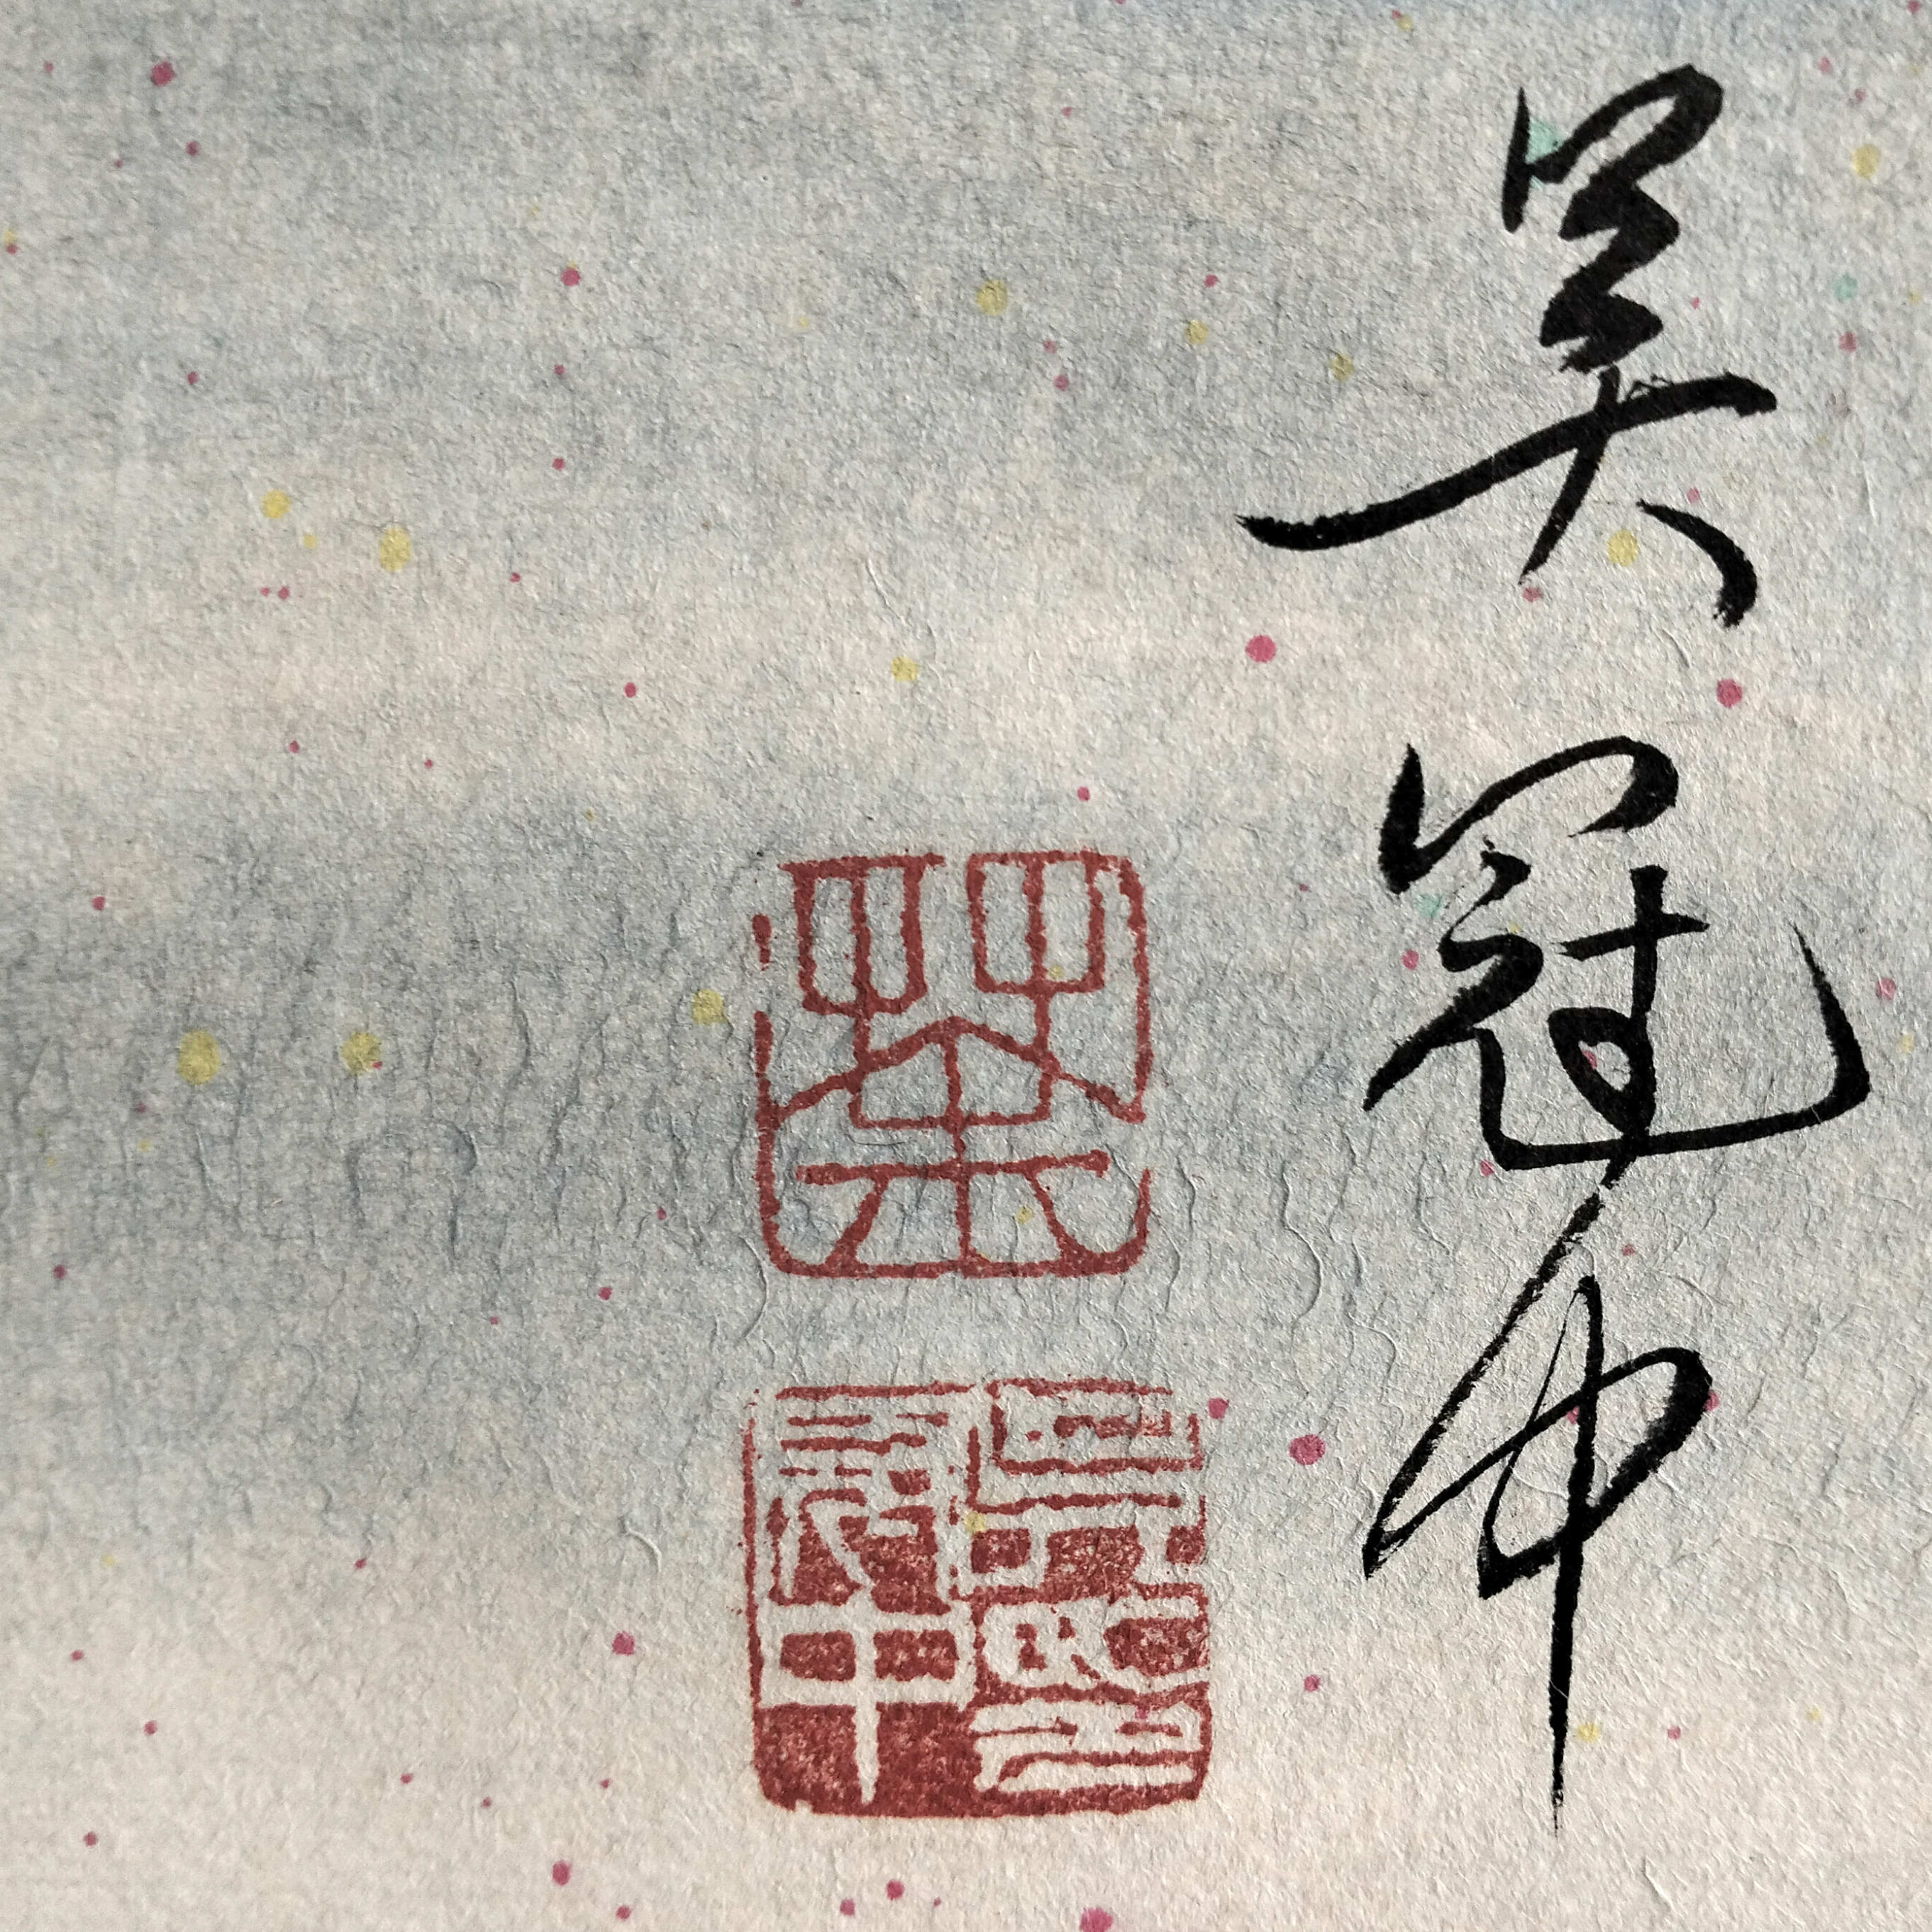 吴冠中
荼
吴冠中印